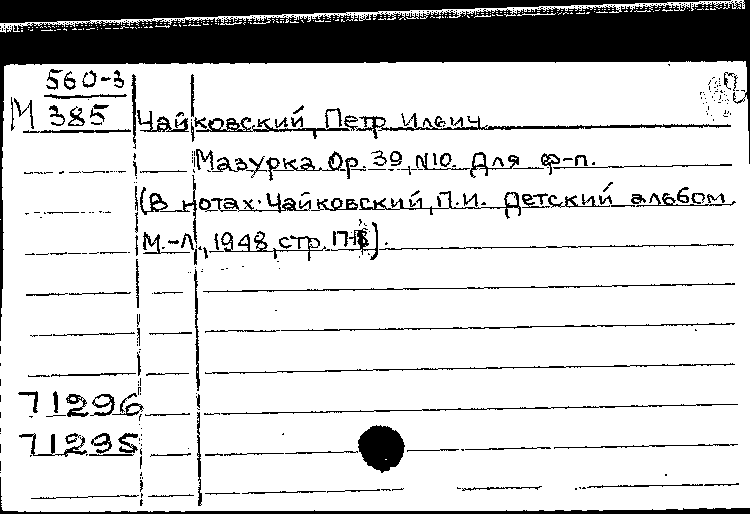 560-3
М 385 Чайковский, Петр Ильич
Мазурка. Op. 39, N10. Для ф-п.
(В нотах: Чайковский, П.И. Детский альбом.
М.-Л., 1948, стр.
71296
71295